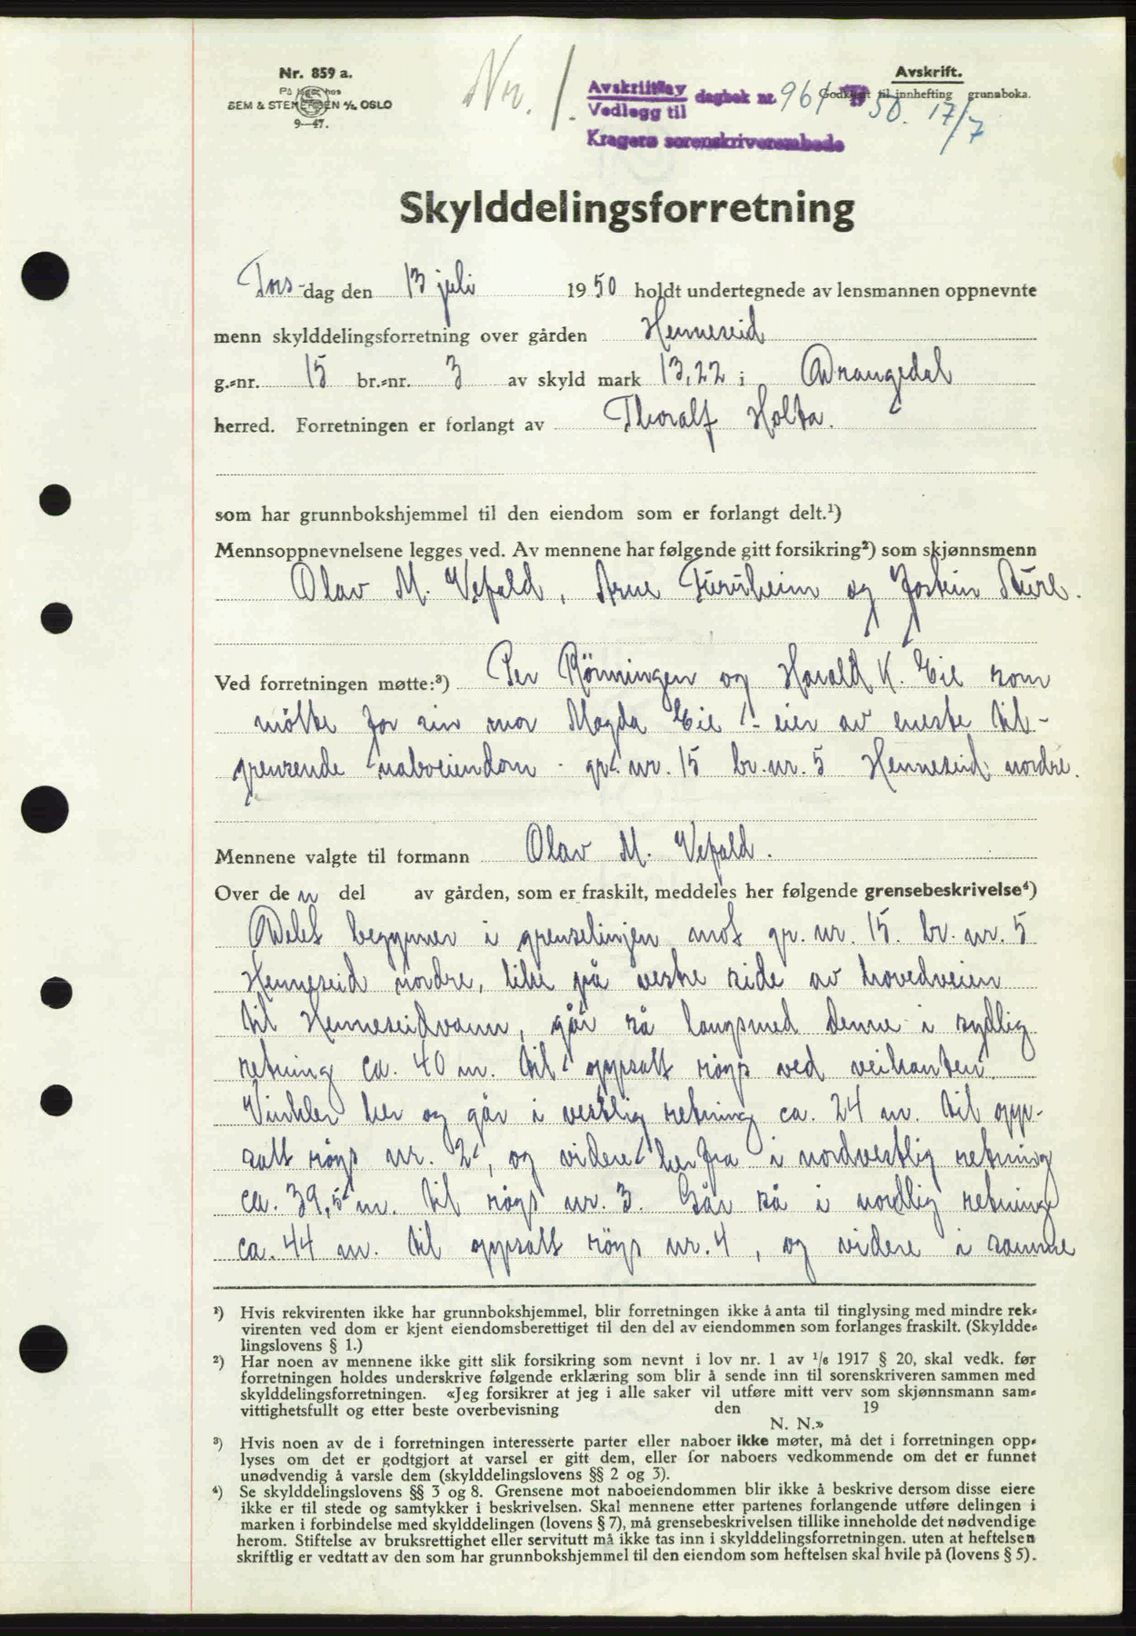 Nr. 859 a.
På lager hos
SEM & STENERSEN A/S OSLO
9—47.
Nr. 1.
Avskrift av
Vedlegg til
dagbok nr. 961 19 50. 17/7
Kragerø sorenskriverembede
Avskrift.
Godkjent til innhefting grunnboka.
Skylddelingsforretning
Tors-dag den 13 juli 1950 holdt undertegnede av lensmannen oppnevnte
menn skylddelingsforretning over gården Henneseid
g.-nr. 15 br.-nr. 3 av skyld mark 13,22 i Drangedal
herred. Forretningen er forlangt av Thoralf Holta.
som har grunnbokshjemmel til den eiendom som er forlangt delt.¹)
Mennsoppnevnelsene legges ved. Av mennene har følgende gitt forsikring²) som skjønnsmenn
Olav M. Vefald, Arne Furuheim og Jostein
Ved forretningen møtte:³) Per Rönningen og Harald K. Eie som
mötte for sin mor Magda Eie - eier av eneste til-
grenzende naboeiendom - gr. nr. 15 br. nr. 5 Henneseid nordre.
Mennene valgte til formann Olav M. Vefald.
Over de n del av gården, som er fraskilt, meddeles her følgende grensebeskrivelse⁴)
Delet begynner i grenselinjen mot gr. nr. 15. br. nr. 5
Henneseid nordre, like på vestre side av hovedveien
til Henneseidvann, går så langsmed denne i sydlig
retning ca. 40 m. til oppsatt röys ved veikanten.
Vinkler her og går i vestlig retning ca. 24 m. til opp-
satt röys nr. 2, og videre her fra i nordvestlig retning
ca. 39,5 m. til röys nr. 3. Går så i nordlig retning
ca. 44 m. til oppsatt röys nr. 4, og videre i samme
¹) Hvis rekvirenten ikke har grunnbokshjemmel, blir forretningen ikke å anta til tinglysing med mindre rek-
virenten ved dom er kjent eiendomsberettiget til den del av eiendommen som forlanges fraskilt. (Skyldde-
lingslovens § 1.)
²) Har noen av mennene ikke gitt slik forsikring som nevnt i lov nr. 1 av ¹/₆ 1917 § 20, skal vedk. før
forretningen holdes underskrive følgende erklæring som blir å sende inn til sorenskriveren sammen med
skylddelingsforretningen. «Jeg forsikrer at jeg i alle saker vil utføre mitt verv som skjønnsmann sam-
vittighetsfullt og etter beste overbevisning den 19
N. N.»
³) Hvis noen av de i forretningen interesserte parter eller naboer ikke møter, må det i forretningen opp-
lyses om det er godtgjort at varsel er gitt dem, eller for naboers vedkommende om det er funnet
unødvendig å varsle dem (skylddelingslovens §§ 2 og 3).
⁴) Se skylddelingslovens §§ 3 og 8. Grensene mot naboeiendommen blir ikke å beskrive dersom disse eiere
ikke er til stede og samtykker i beskrivelsen. Skal mennene etter partenes forlangende utføre delingen i
marken i forbindelse med skylddelingen (lovens § 7), må grensebeskrivelsen tillike inneholde det nødvendige
herom. Stiftelse av bruksrettighet eller servitutt må ikke tas inn i skylddelingsforretningen. uten at heftelsen
skriftlig er vedtatt av den som har grunnbokshjemmel til den eiendom som heftelsen skal hvile på (lovens § 5).